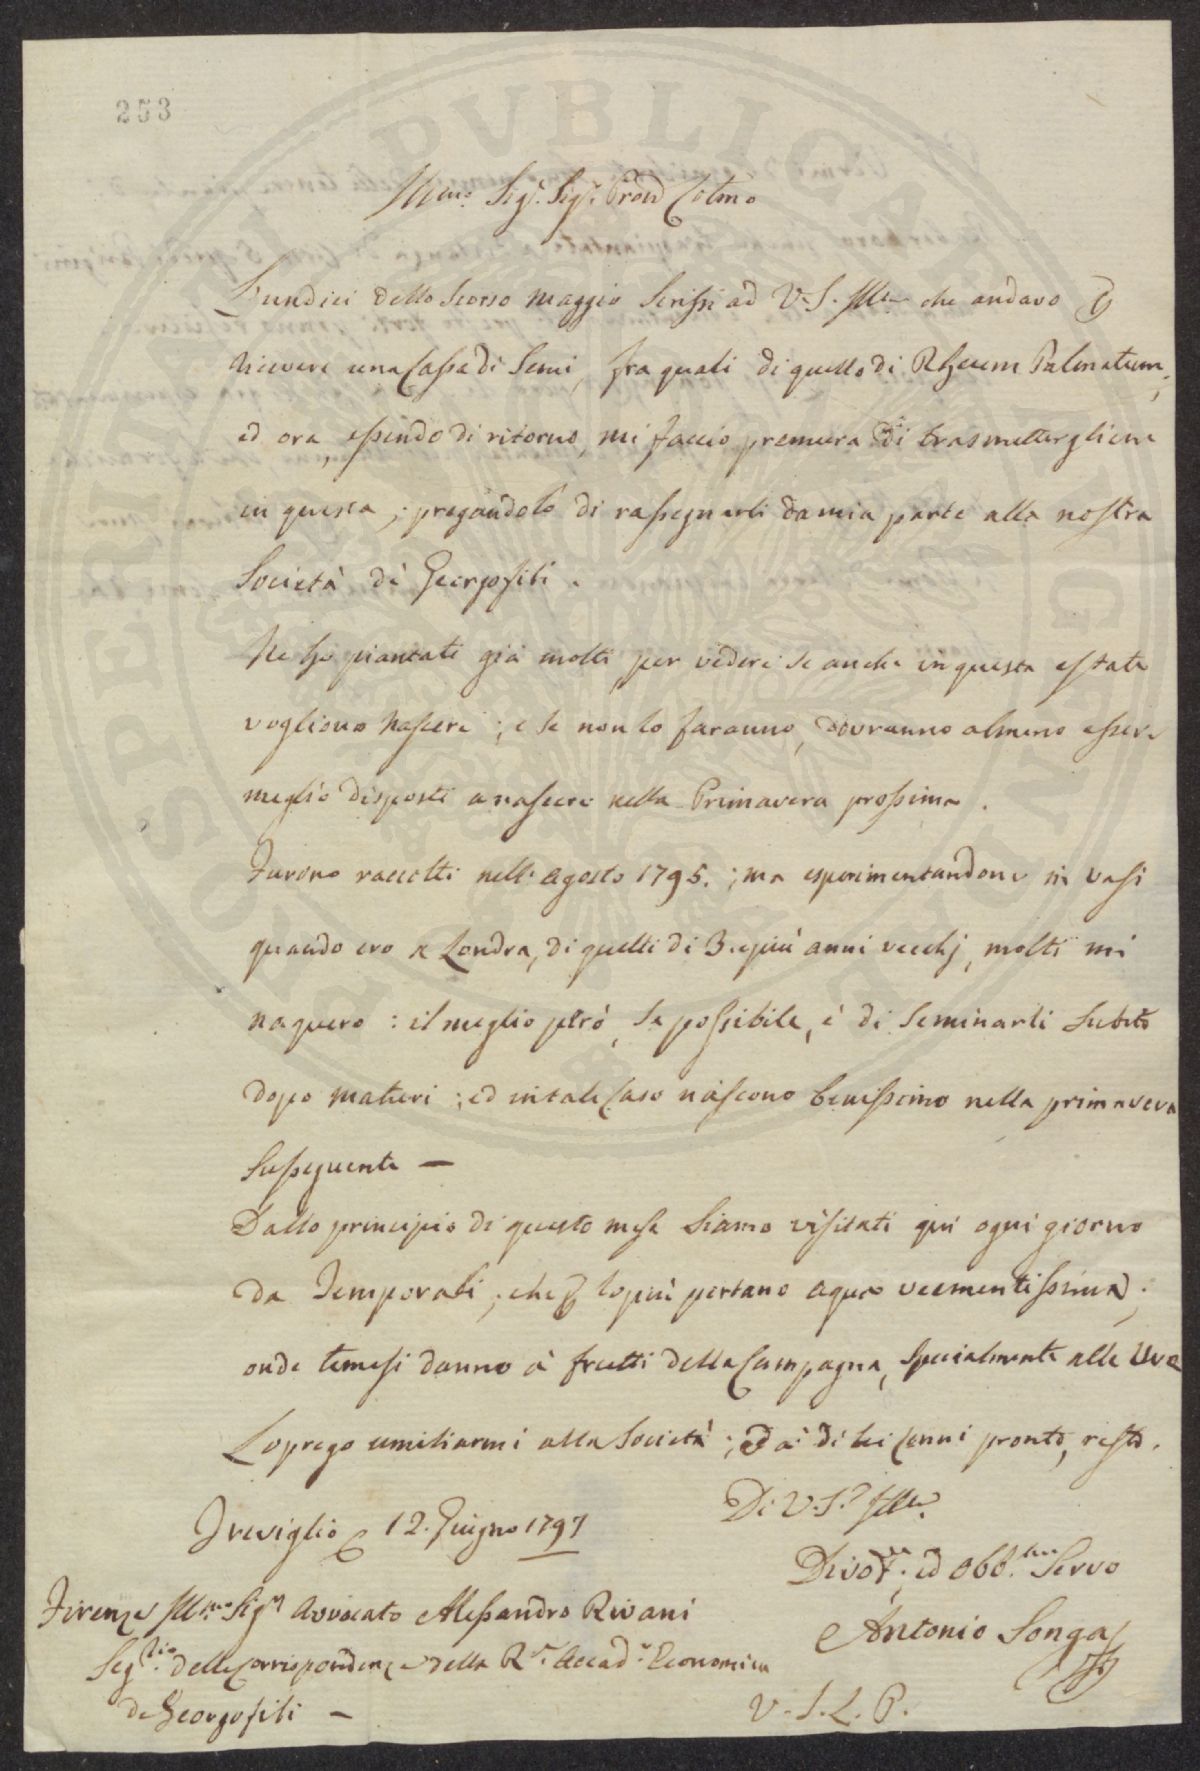 253
Illmo. Sigr. Sigr. Prone Colmo
L'undici dello scorso Maggio scrissi ad V. S. Illma che andavo a
ricevere una Cassa di Semi, fra quali di quello di Rheum Palmatum,
ed ora, essendo di ritorno, mi faccio premura di trasmettergliene
in questa, pregandola di rassegnarli da mia parte alla nostra
Società de' Georgofili.
Ne ho piantati già molti per vedere se anche in questa estate
vogliono nascere; e se non lo faranno, dovranno almeno essere
meglio disposti a nascere nella Primavera prossima.
Furono raccolti nell' Agosto 1795.; ma esperimentandone in vasi
quando ero a Londra, di quelli di 3. e più anni vecchj, molti mi
naquero: il meglio però, se possibile, è di Seminarli subito
dopo maturi; ed in tale Caso nascono benissimo nella primavera
Susseguente —
Dallo principio di questo mese siamo visitati qui ogni giorno
da Temporali, che per lo più portano aqua veementissima;
onde temesi danno a' frutti della Campagna, specialmente alle Uve
La prego umiliarmi alla Società; ed a' di lei Cenni pronto, resto.
Di V. S. Illma
Treviglio 12. Giugno 1797
Divotmo. ed Obbmo. Servo
Firenze Illmo Sigr Avvocato Alessandro Rivani
Antonio Songa
Segrio. delle Corrispondenze della Rle. Accada. Economica
de Georgofili —
V. S. L. P.